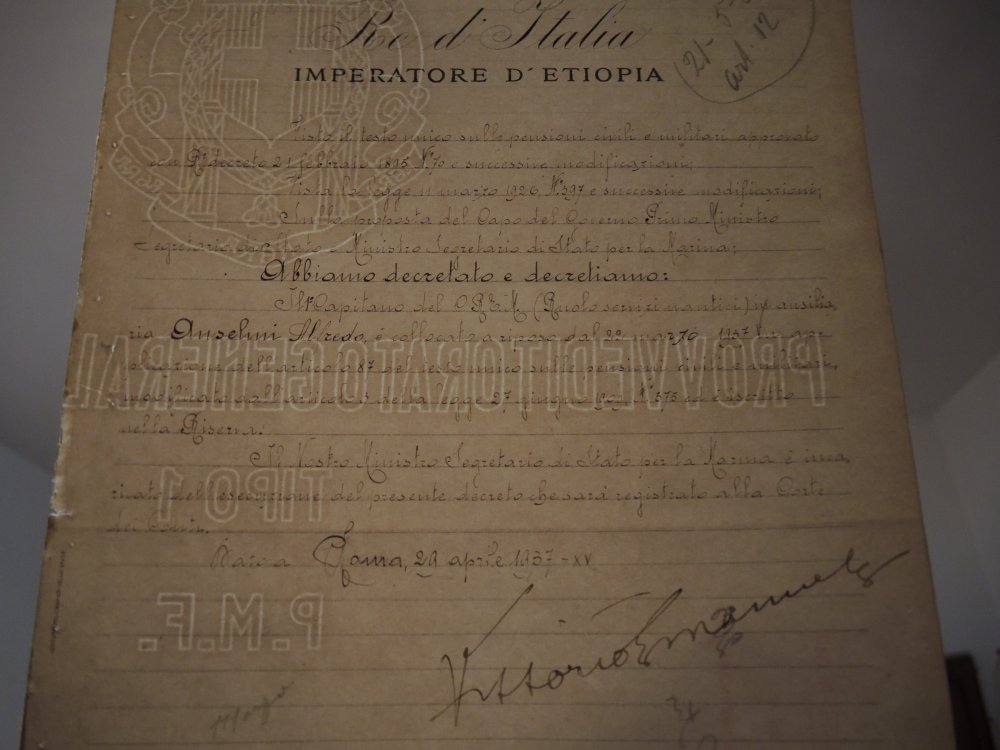 Re d'Italia
IMPERATORE D'ETIOPIA
21-
art. 12
Visto il testo unico sulle pensioni civili e militari approvato
con R. decreto 21 febbraio 1895 N. 70 e successive modificazioni;
Vista la legge 11 marzo 1926 N. 397 e successive modificazioni;
Sulla proposta del Capo del Governo Primo Ministro
Segretario di Stato e Ministro Segretario di Stato per la Marina;
Abbiamo decretato e decretiamo:
Il Capitano del C.R.E.M. (Ruolo servizi nautici) in ausilia
ria Anselmi Alfredo, è collocato a riposo dal 22 marzo 1937 in ap
plicazione dell'articolo 87 del testo unico sulle pensioni civili e militari,
modificato dall'articolo 3 della legge 27 giugno 1909 N. 375 ed è iscritto
nella Riserva.
Il Nostro Ministro Segretario di Stato per la Marina è inca
ricato dell'esecuzione del presente decreto che sarà registrato alla Corte
dei Conti.
Dato a Roma, 29 aprile 1937-XV
Vittorio Emanuele
PROVVEDITORATO GENERAL
TIPO 1
P.M.F.